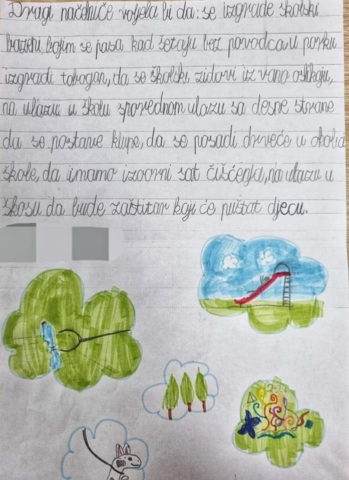 Dragi načelniče voljela bi da: se izgrade školski
bazeni, kojim se pasa kad šetaju bez povodca u parku,
izgradi tobogan, da se školski zidovi iz vana oslikaju,
na ulazu u školu sporednom ulazu sa desne strane
da se postave klupe, da se posadi drveće u okolici
škole, da imamo izborni sat čišćenja, na ulazu u
školu da bude zaštitar koji će puštat djecu.